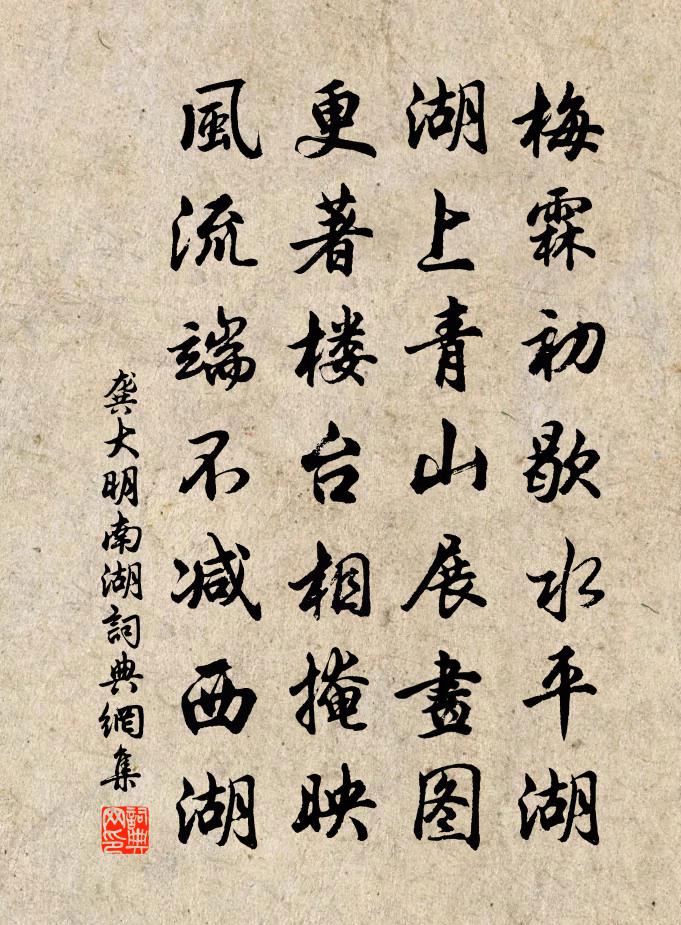 梅霖初歇水平湖
湖上青山展畫图
更著楼台相掩映
風流端不减西湖
龚大明南湖詞典網集
詞典网印